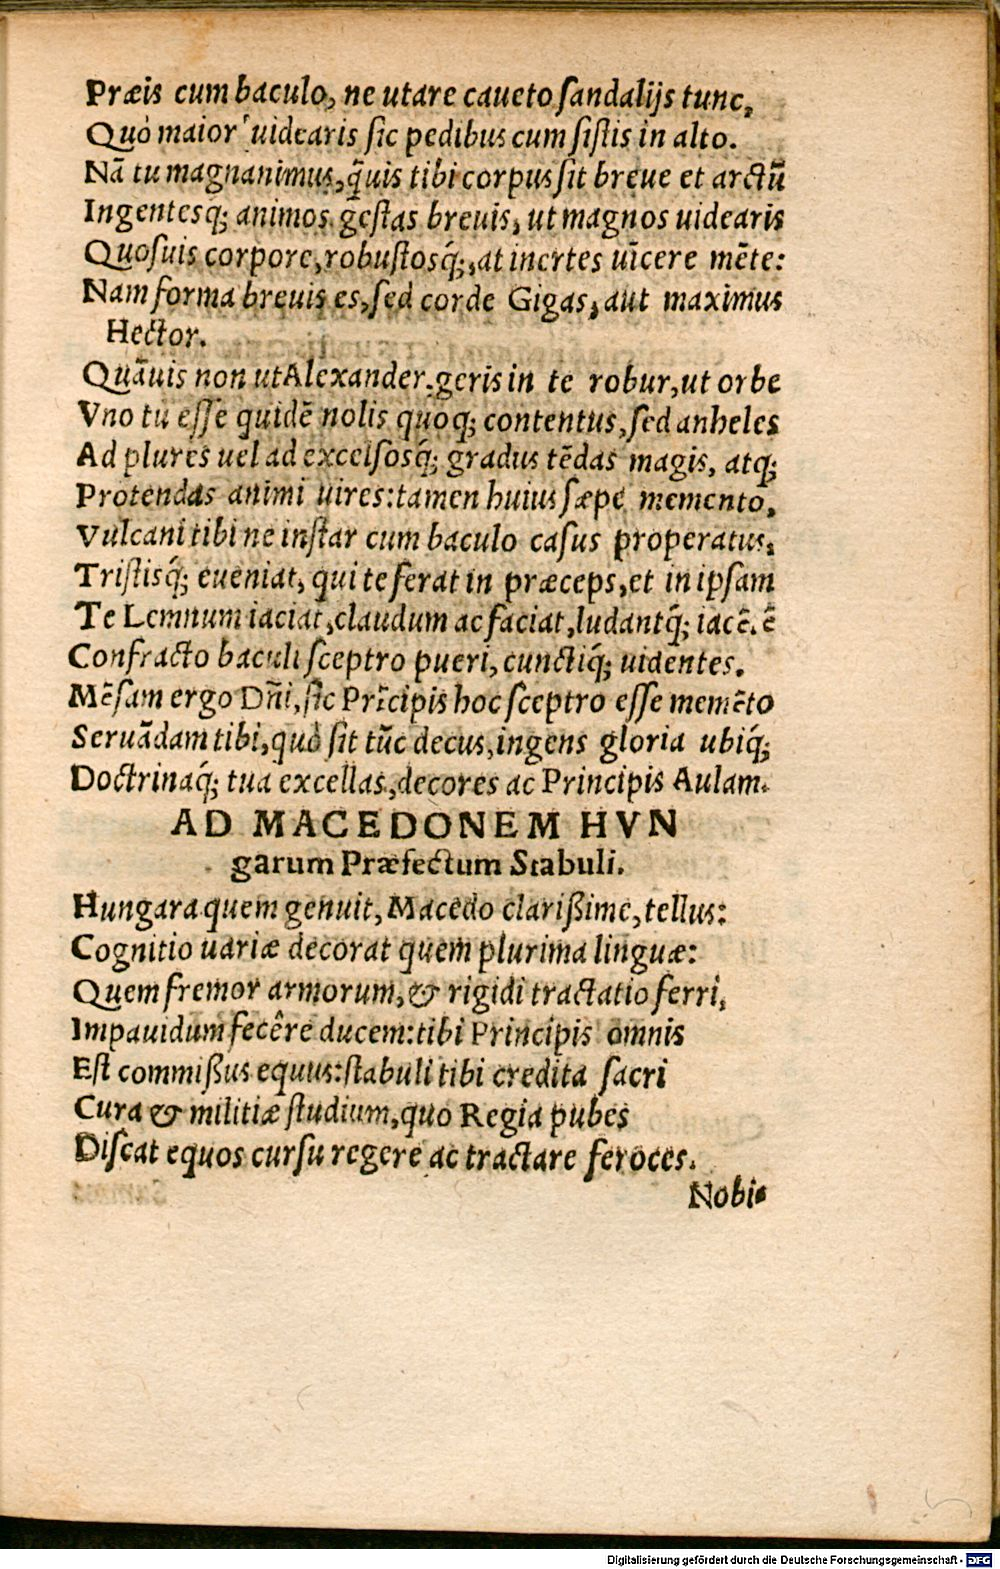 Præis cum baculo, ne utare caueto sandalijs tunc,
Quò maior uidearis sic pedibus cum sistis in alto.
Nã tu magnanimus, q̃uis tibi corpus sit breue et arctũ
Ingentesq; animos gestas breuis, ut magnos uidearis
Quosuis corpore, robustosq́;, at inertes uĩcere mẽte:
Nam forma breuis es, sed corde Gigas, aut maximus
Hector.
Quãuis non ut Alexander, geris in te robur, ut orbe
Vno tu esse quidẽ nolis quoq; contentus, sed anheles
Ad plures uel ad excelsosq́; gradus tẽdas magis, atq;
Protendas animi uires: tamen huius sæpe memento,
Vulcani tibi ne instar cum baculo casus properatus,
Tristisq́; eueniat, qui te ferat in præceps, et in ipsam
Te Lemnum iaciat, claudum ac faciat, ludantq́; iacẽ. ẽ
Confracto baculi sceptro pueri, cunctiq́; uidentes.
Mẽsam ergo Dñi, sic Prĩcipis hoc sceptro esse memẽto
Seruãdam tibi, quò sit tũc decus, ingens gloria ubiq́;
Doctrinaq́; tua excellas, decores ac Principis Aulam.
AD MACEDONEM HVN
garum Præfectum Stabuli.
Hungara quem genuit, Macedo clarißime, tellus:
Cognitio uariæ decorat quem plurima linguæ:
Quem fremor armorum, & rigidi tractatio ferri,
Impauidum fecêre ducem: tibi Principis omnis
Est commißus equus: stabuli tibi credita sacri
Cura & militiæ studium, quo Regia pubes
Discat equos cursu regere ac tractare feroces.
Nobi-
Digitalisierung gefördert durch die Deutsche Forschungsgemeinschaft - DFG